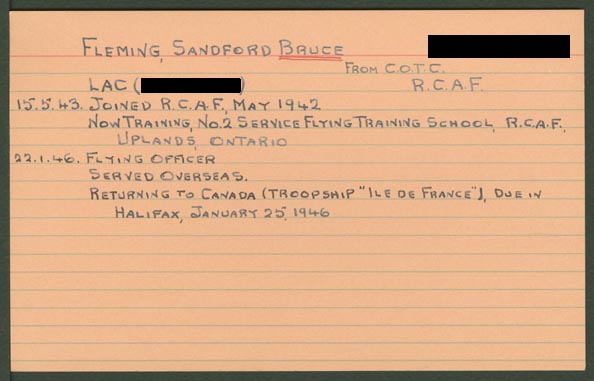 FLEMING, SANDFORD BRUCE
FROM C.O.T.C.
LAC ( ) R.C.A.F.
15.5.43. JOINED R.C.A.F., MAY 1942
NOW TRAINING, NO.2 SERVICE FLYING TRAINING SCHOOL, R.C.A.F.,
UPLANDS, ONTARIO
22.1.46. FLYING OFFICER
SERVED OVERSEAS.
RETURNING TO CANADA (TROOPSHIP "ILE DE FRANCE"), DUE IN
HALIFAX, JANUARY 25, 1946